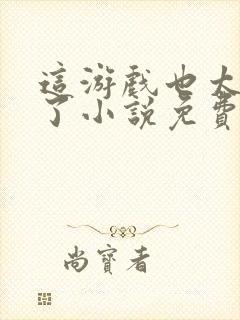 這游戲也太
了小說免費
尚寶者